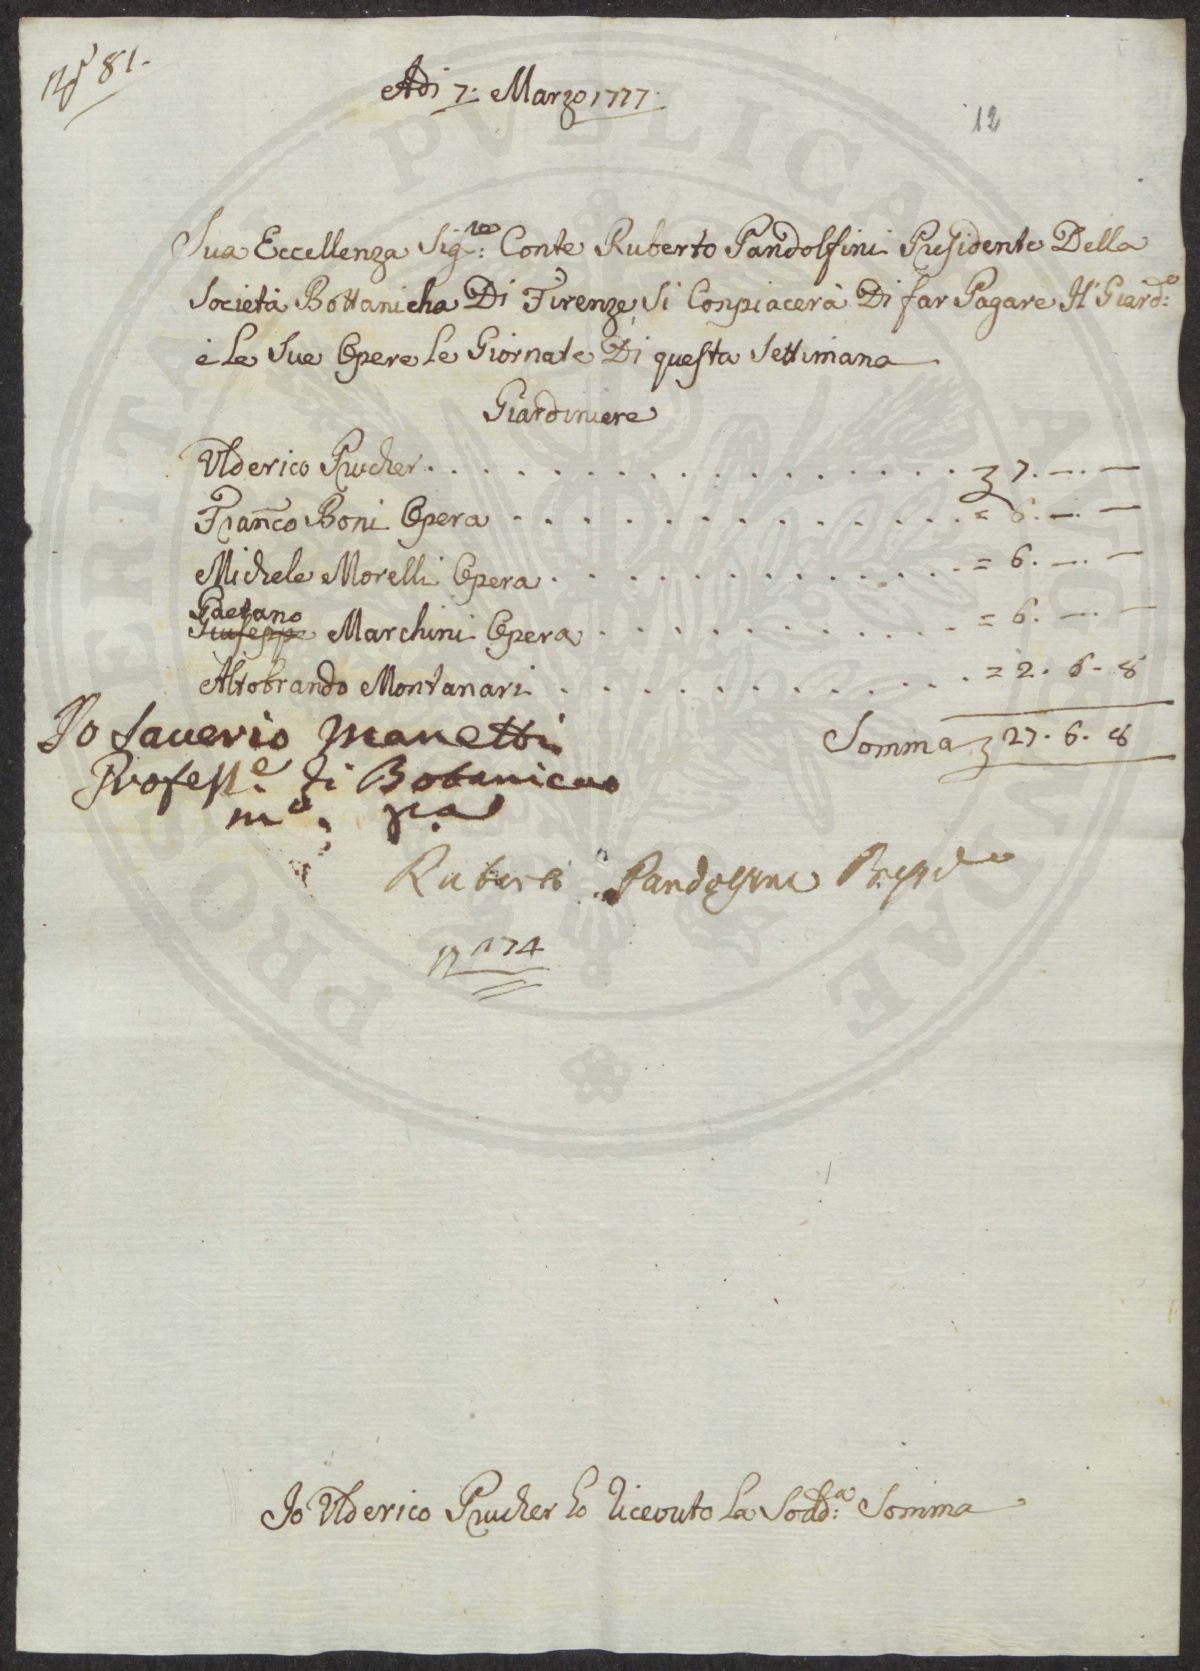 N° 81.
Adi 7: Marzo 1777.
12
Sua Eccellenza Sig:re Conte Ruberto Pandolfini Presidente Della
Società Bottanicha Di Firenze, Si Conpiacerà Di far Pagare Il Giard:e
è Le Sue Opere Le Giornate Di questa Settimana
Giardiniere
Ulderico Prucher . . . . . . . . . . . . . . . . 7. —. —
Franco Boni Opera . . . . . . . . . . . . . . = 6. —. —
Michele Morelli Opera . . . . . . . . . . . . = 6. —. —
Gaetano
Giuseppe Marchini Opera . . . . . . . . . . = 6. —. —
Altobrando Montanari . . . . . . . . . . . . = 2. 6. 8
Somma 27. 6. 8
Io Saverio Manetti
Profess:e di Botanica
m:o p:a
Ruberto Pandolfini Presid:e
N 174
Io Ulderico Prucher ho ricevuto La Sodd:a Somma
PROSPERITATI PVBLICAE AVGENDAE